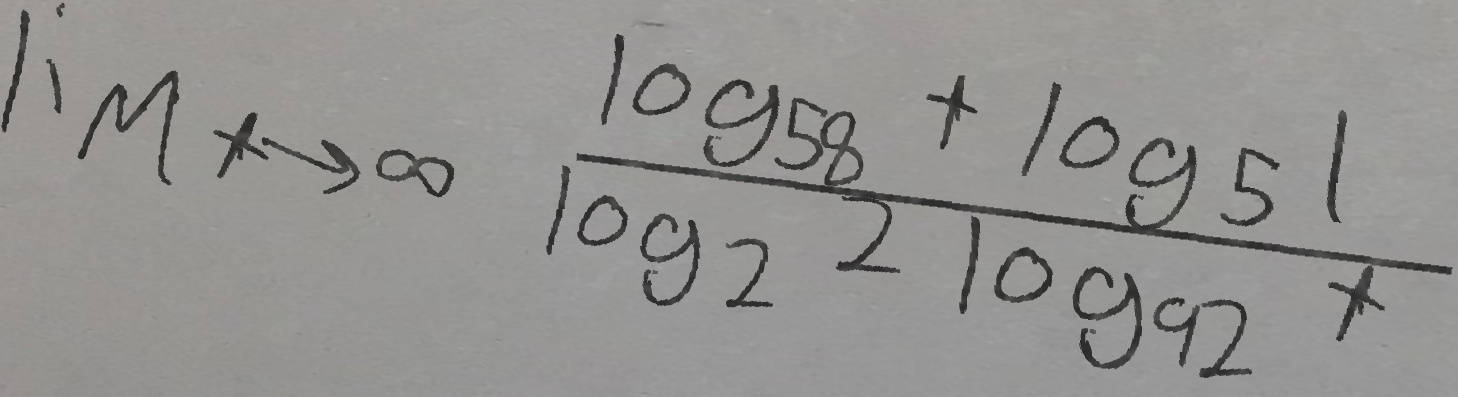 \lim_{x \to \infty} \frac{\log_{58} x \log_5 1}{\log_2 2 \log_{92} x}